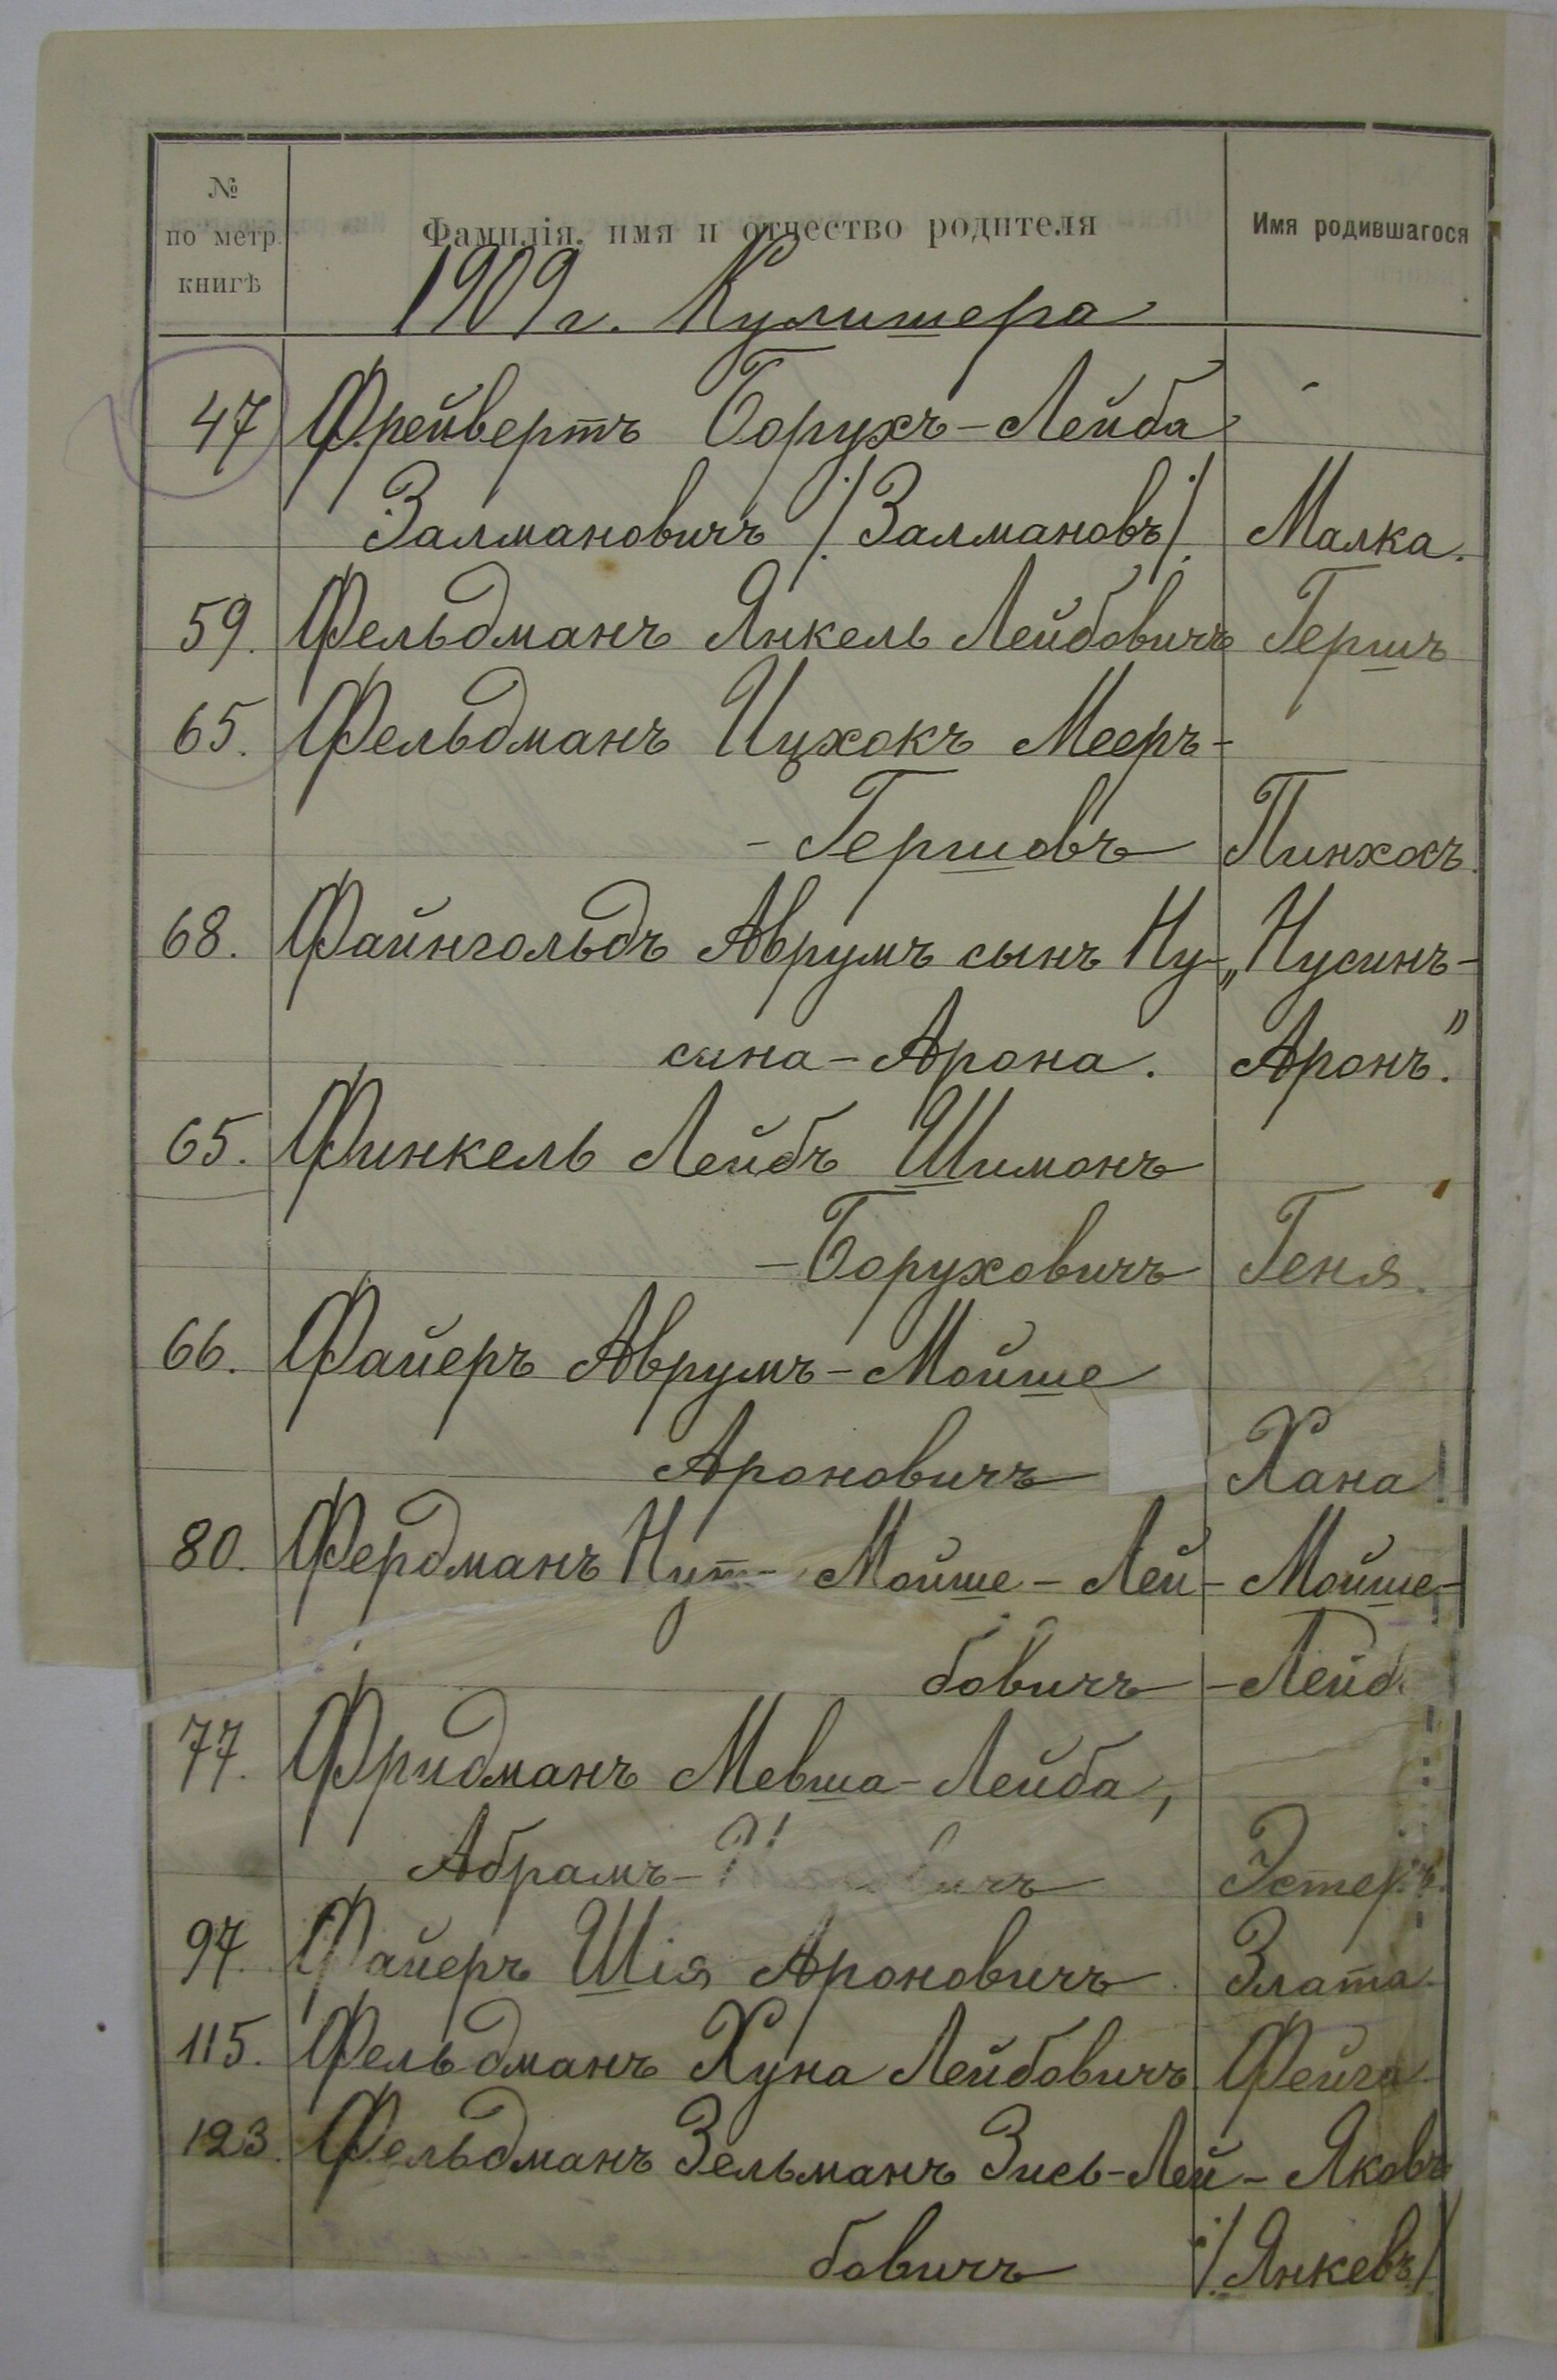 №
по метр.
книгѣ
Фамилія, имя и отчество родителя
Имя родившагося
1909 г. Кулишера
47 Фрейвертъ Борухъ-Лейба
Залмановичъ /Залмановъ/ Малка.
59. Фельдманъ Янкель Лейбовичъ Гершъ
65. Фельдманъ Ицхокъ Мееръ-
-Гершовъ Пинхосъ.
68. Файнгольдъ Аврумъ сынъ Ну- „Нусинъ-
сина-Арона. Аронъ."
65. Финкель Лейбъ Шимонъ
-Боруховичъ Геня.
66. Файеръ Аврумъ-Мойше
Ароновичъ Хана
80. Фердманъ Мойше-Лей- Мойше-
бовичъ -Лейб
77. Фридманъ Мевша-Лейба,
Абрамъ- Эстеръ.
97. Файеръ Шія Ароновичъ Злата
115. Фельдманъ Хуна Лейбовичъ Фейга
123. Фельдманъ Зельманъ Зись-Лей- Яковъ
бовичъ /Янкевъ/